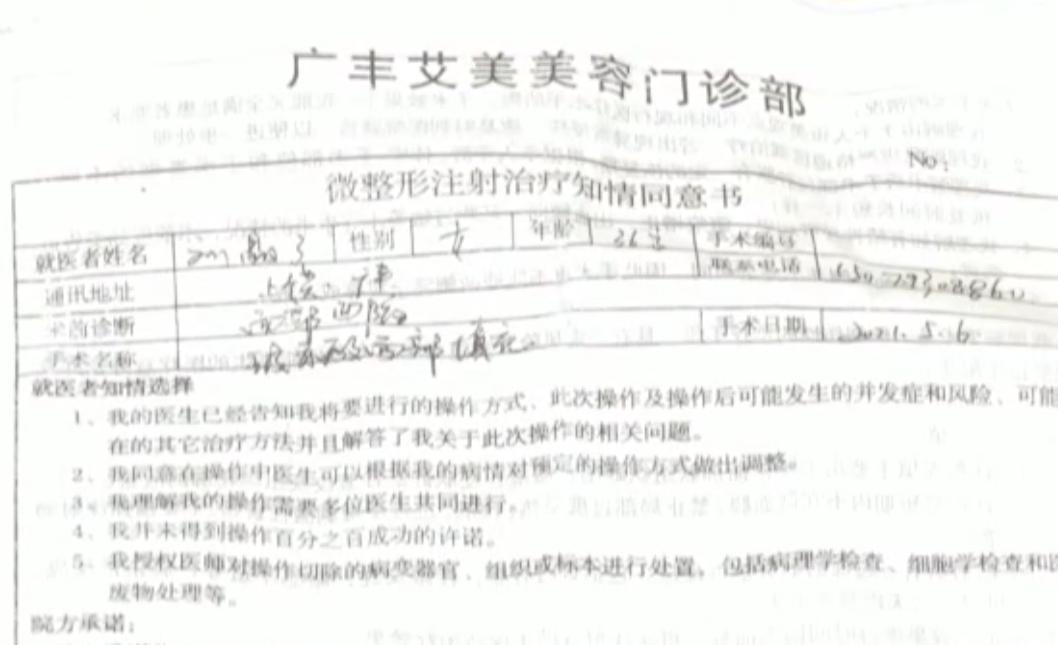 广丰艾美美容门诊部
No:
微整形注射治疗知情同意书
就医者姓名 性别 女 年龄 26岁 手术编号
通讯地址 上饶 广丰 联系电话
术前诊断 面部凹陷
手术名称 玻尿酸 面部填充
手术日期 2021.5.6
就医者知情选择
1、我的医生已经告知我将要进行的操作方式、此次操作及操作后可能发生的并发症和风险、可能
在的其它治疗方法并且解答了我关于此次操作的相关问题。
2、我同意在操作中医生可以根据我的病情对预定的操作方式做出调整。
3、我理解我的操作需要多位医生共同进行。
4、我并未得到操作百分之百成功的许诺。
5、我授权医师对操作切除的病变器官、组织或标本进行处置，包括病理学检查、细胞学检查和医
废物处理等。
院方承诺：